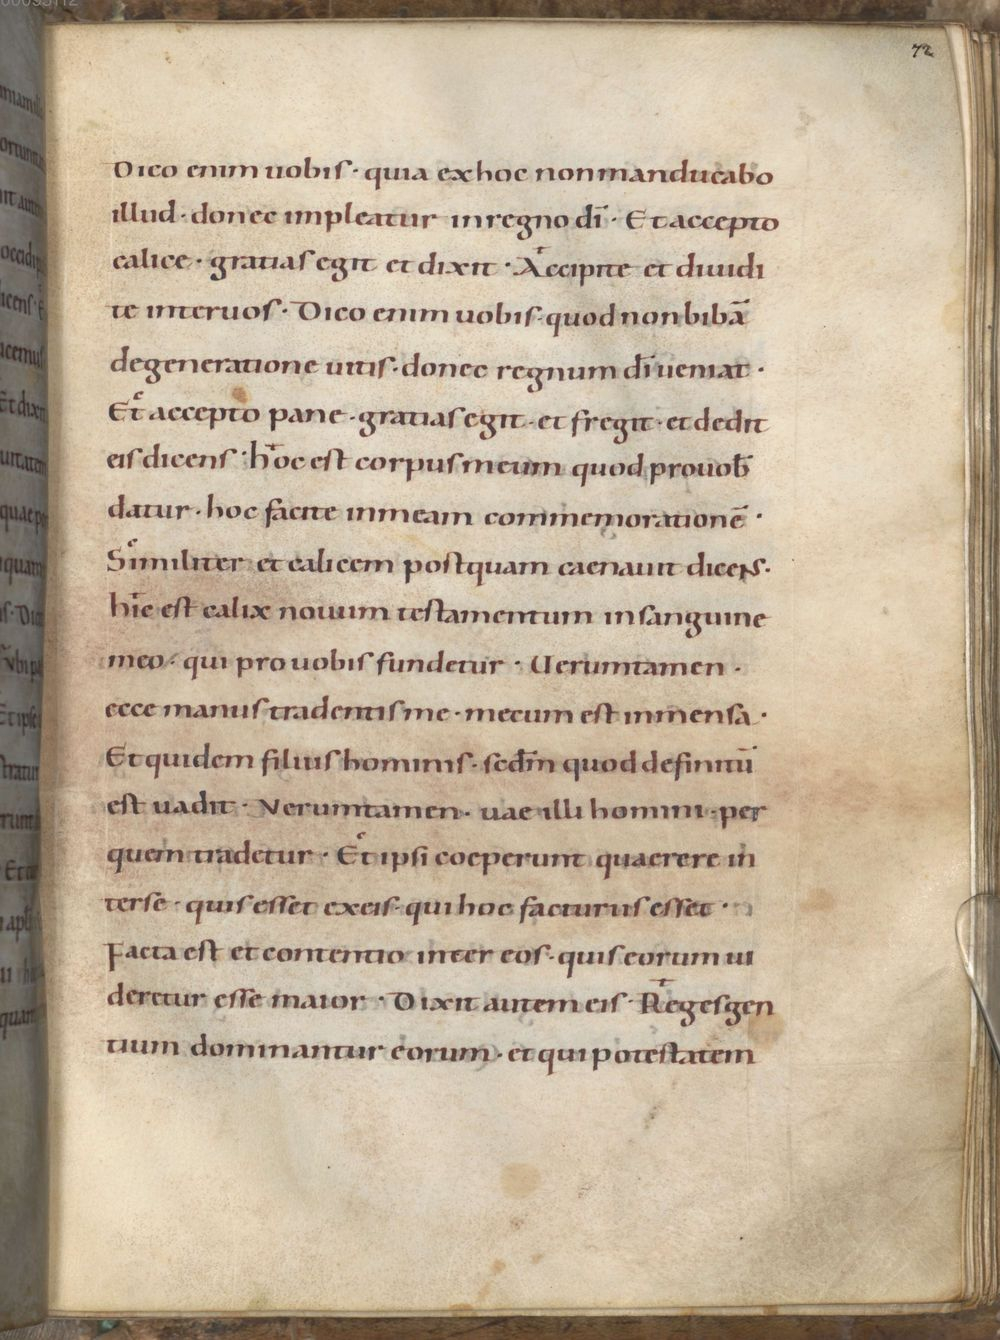 72
Dico enim uobis · quia exhoc nonmanducabo
illud · donec impleatur inregno dī · Et accepto
calice · gratias egit et dixit · Accipite et diuidi
te interuos · Dico enim uobis · quod non bibā
degeneratione uitis · donec regnum dī ueniat ·
Et accepto pane · gratias egit · et fregit · et dedit
eis dicens · hoc est corpus meum quod prouob̄
datur · hoc facite inmeam commemorationē ·
Similiter et calicem postquam caenauit dicens ·
hic est calix nouum testamentum insanguine
meo · qui pro uobis fundetur · Uerumtamen ·
ecce manus tradentis me · mecum est inmensa ·
Et quidem filius hominis · secdm̄ quod definitū
est uadit · Verumtamen · uae illi homini · per
quem tradetur · Et ipsi coeperunt quaerere in
terse · quis esset exeis · qui hoc facturus esset ·
Facta est et contentio inter eos · quis eorum ui
deretur esse maior · Dixit autem eis · Reges gen
tium dominantur eorum · et qui potestatem